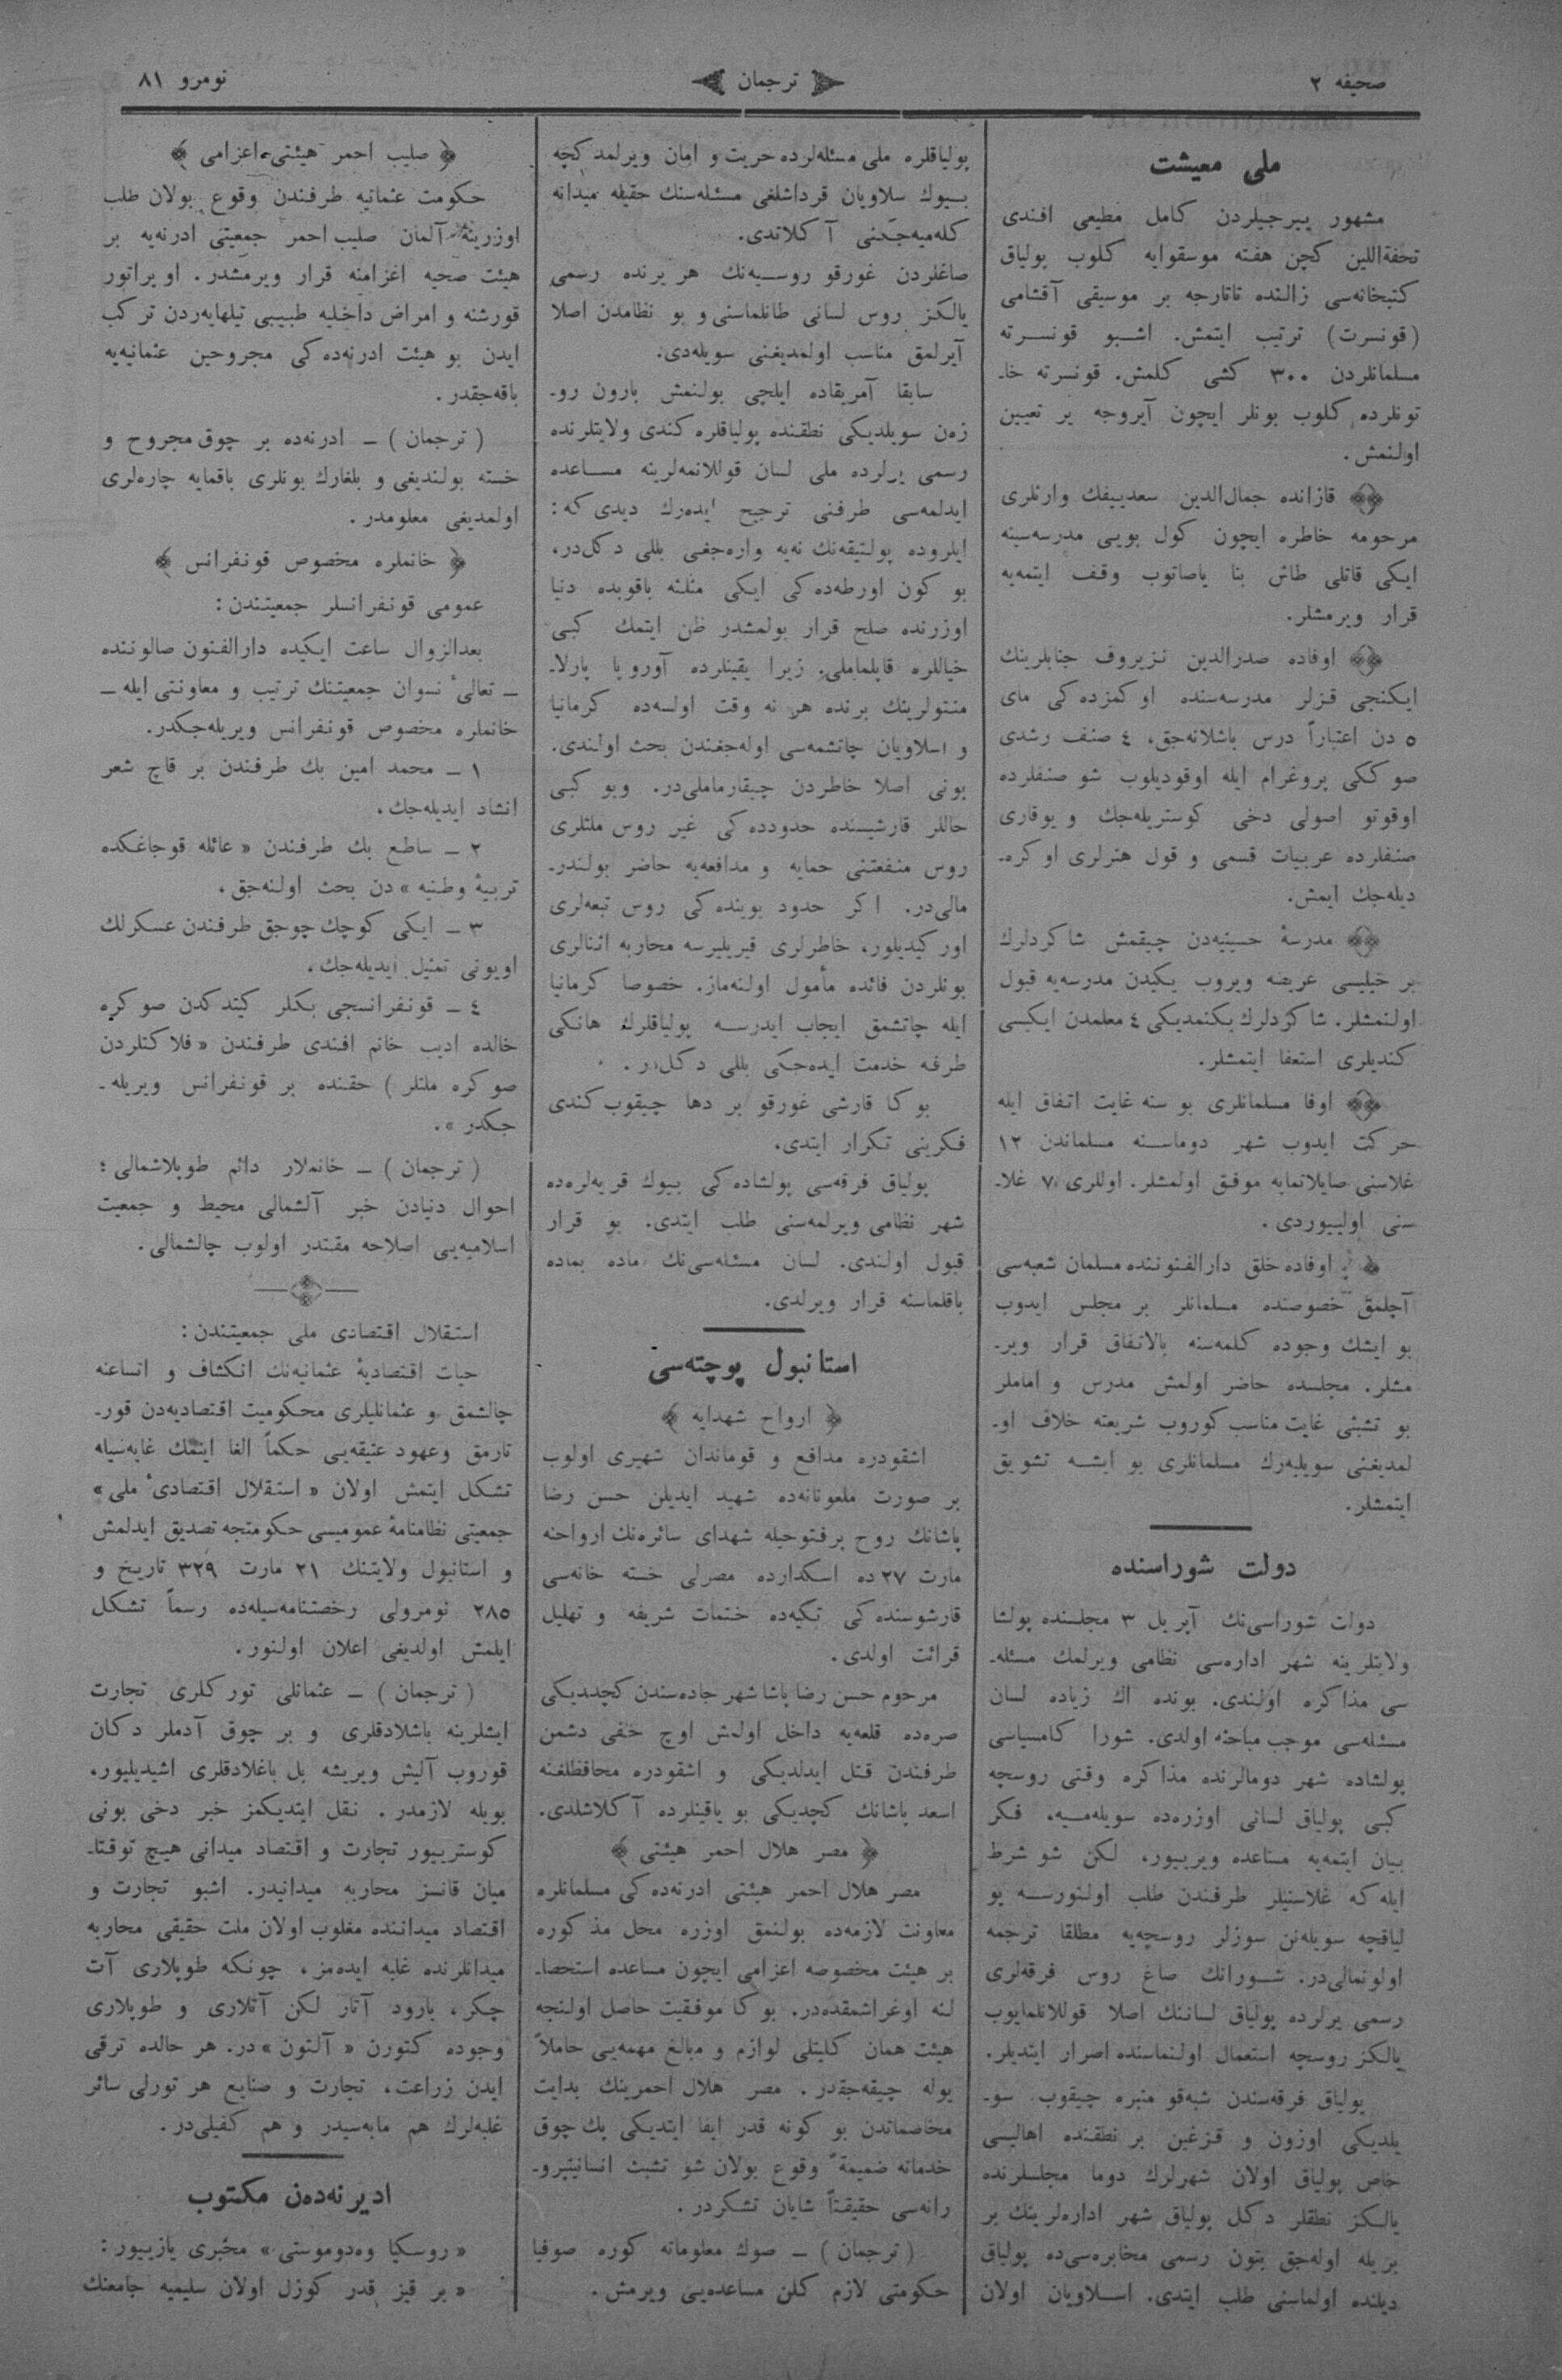 صحیفه ٢
ترجمان
نومرو ٨١
ملی معیشت
مشهور ییرجیلردن كامل مطیعی افندی
تحفةاللین كچن هفته موسقوایه كلوب پولیاق
كتبخانه‌سی زالنده تاتارجه بر موسیقی آقشامی
(قونسرت) ترتیب ایتمش. اشبو قونسرته
مسلمانلردن ٣٠٠ كشی كلمش. قونسرته خا‍ـ
تونلرده كلوب بونلر ایچون آیروجه یر تعیین
اولنمش.
قازانده جمال‌الدین سعدییفك وارثلری
مرحومه خاطره ایچون كول بویی مدرسه‌سینه
ایكی قاتلی طاش بنا یاصاتوب وقف ایتمه‌یه
قرار ویرمشلر.
اوفاده صدرالدین نزیروف جنابلرینك
ایكنجی قزلر مدرسه‌سنده اوكمزده‌كی مای
٥ دن اعتباراً درس باشلانه‌جق، ٤ صنف رشدی
صوككی پروغرام ایله اوقودیلوب شو صنفلرده
اوقوتو اصولی دخی كوستریله‌جك و یوقاری
صنفلرده عربیات قسمی و قول هنرلری اوكره‌ـ
دیله‌جك ایمش.
مدرسهٔ حسینیه‌دن چیقمش شاكردلرك
بر خیلیسی عریضه ویروب یكیدن مدرسه‌یه قبول
اولنمشلر. شاكردلرك یكنمدیكی ٤ معلمدن ایكیسی
كندیلری استعفا ایتمشلر.
اوفا مسلمانلری بو سنه غایت اتفاق ایله
حركت ایدوب شهر دوماسنه مسلماندن ١٢
غلاسنی صایلاتمایه موفق اولمشلر. اوللری ٧ غلا‍ـ
سنی اولییوردی.
اوفاده خلق دارالفنوننده مسلمان شعبه‌سی
آچلمق خصوصنده مسلمانلر بر مجلس ایدوب
بو ایشك وجوده كلمه‌سنه بالاتفاق قرار ویر‍ـ
مشلر. مجلسده حاضر اولمش مدرس و اماملر
بو تشبثی غایت مناسب كوروب شریعته خلاف او‍ـ
لمدیغنی سویلیه‌رك مسلمانلری بو ایشه تشویق
ایتمشلر.
دولت شوراسنده
دولت شوراسی‌نك آپریل ٣ مجلسنده پولشا
ولایتلرینه شهر اداره‌سی نظامی ویرلمك مسئله‌ـ
سی مذاكره اولندی. بونده اك زیاده لسان
مسئله‌سی موجب مباحثه اولدی. شورا كامسیاسی
پولشاده شهر دومالرنده مذاكره وقتی روسچه
كبی پولیاق لسانی اوزره‌ده سویله‌مه‌یه، فكر
بیان ایتمه‌یه مساعده ویرییور، لكن شو شرط
ایله كه غلاسنیلر طرفندن طلب اولنورسه پو
لیاقچه سویله‌نن سوزلر روسچه‌یه مطلقا ترجمه
اولونمالی‌در. شورانك صاغ روس فرقه‌لری
رسمی یرلرده پولیاق لساننك اصلا قوللانلمایوب
یالكز روسچه استعمال اولنماسنده اصرار ایتدیلر.
پولیاق فرقه‌سندن شبه‌قو منبره چیقوب سو‍ـ
یلدیكی اوزون و قزغین بر نطقنده اهالیسی
خاص پولیاق اولان شهرلرك دوما مجلسلرنده
یالكز نطقلر دكل پولیاق شهر اداره‌لرینك بر
بریله اوله‌جق بتون رسمی مخابره‌سی‌ده پولیاق
دیلنده اولماسنی طلب ایتدی. اسلاویان اولان
پولیاقلره ملی مسئله‌لرده حریت و امان ویرلمدكچه
بیوك سلاویان قرداشلغی مسئله‌سنك حقیله میدانه
كله‌میه‌جكنی آكلاتدی.
صاغلردن غورقو روسیه‌نك هر یرنده رسمی
یالكز روس لسانی طانلماسنی و بو نظامدن اصلا
آیرلمق مناسب اولمدیغنی سویله‌دی.
سابقا آمریقاده ایلچی بولنمش بارون رو‍ـ
زه‌ن سویلدیكی نطقنده پولیاقلره كندی ولایتلرنده
رسمی یرلرده ملی لسان قوللانمه‌لرینه مساعده
ایدلمه‌سی طرفنی ترجیح ایده‌رك دیدی كه:
ایلروده پولتیقه‌نك نه‌یه واره‌جغی بللی دكل‌در،
بو كون اورطه‌ده‌كی ایكی مثلثه باقوبده دنیا
اوزرنده صلح قرار بولمشدر ظن ایتمك كبی
خیاللره قاپلماملی. زیرا یقینلرده آوروپا پارلا‍ـ
منتولرینك برنده هر نه وقت اولسه‌ده كرمانیا
و اسلاویان چاتشمه‌سی اوله‌جغندن بحث اولندی.
بونی اصلا خاطردن چیقارماملی‌در. وبو كبی
حاللر قارشیسنده حدودده‌كی غیر روس ملتلری
روس منفعتنی حمایه و مدافعه‌یه حاضر بولندر‍ـ
مالی‌در. اكر حدود بوینده‌كی روس تبعه‌لری
اوركیدیلور، خاطرلری قیریلیرسه محاربه اثنالری
بونلردن فائده مأمول اولنه‌ماز. خصوصا كرمانیا
ایله چاتشمق ایجاب ایدرسه پولیاقلرك هانكی
طرفه خدمت ایده‌جكی بللی دكل‌در.
بوكا قارشی غورقو بر دها چیقوب كندی
فكرینی تكرار ایتدی.
پولیاق فرقه‌سی پولشاده‌كی بیوك قریه‌لره‌ده
شهر نظامی ویرلمه‌سنی طلب ایتدی. بو قرار
قبول اولندی. لسان مسئله‌سی‌نك ماده بماده
باقلماسنه قرار ویرلدی.
استانبول پوچته‌سی
﴿ ارواح شهدایه ﴾
اشقودره مدافع و قوماندان شهیری اولوب
بر صورت ملعونانه‌ده شهید ایدیلن حسن رضا
پاشانك روح پرفتوحیله شهدای سائره‌نك ارواحنه
مارت ٢٧ ده اسكدارده مصرلی خسته خانه‌سی
قارشوسنده‌كی تكیه‌ده ختمات شریفه و تهلیل
قرائت اولدی.
مرحوم حسن رضا پاشا شهر جاده‌سندن كچدیكی
صره‌ده قلعه‌یه داخل اولمش اوچ خفی دشمن
طرفندن قتل ایدلدیكی و اشقودره محافظلغنه
اسعد پاشانك كچدیكی بو یاقینلرده آكلاشلدی.
﴿ مصر هلال احمر هیئتی ﴾
مصر هلال احمر هیئتی ادرنه‌ده‌كی مسلمانلره
معاونت لازمه‌ده بولنمق اوزره محل مذكوره
بر هیئت مخصوصه اعزامی ایچون مساعده استحصا‍ـ
لنه اوغراشمقده‌در. بوكا موفقیت حاصل اولنجه
هیئت همان كلیتلی لوازم و مبالغ مهمه‌یی حاملاً
یوله چیقه‌جقدر. مصر هلال احمرینك بدایت
مخاصماتدن بو كونه قدر ایفا ایتدیكی پك چوق
خدماته ضمیمةً وقوع بولان شو تشبث انسانیتپرو‍ـ
رانه‌سی حقیقتاً شایان تشكردر.
(ترجمان) ــ صوك معلوماته كوره صوفیا
حكومتی لازم كلن مساعده‌یی ویرمش.
﴿ صلیب احمر هیئتی اعزامی ﴾
حكومت عثمانیه طرفندن وقوع بولان طلب
اوزرینه آلمان صلیب احمر جمعیتی ادرنه‌یه بر
هیئت صحیه اعزامنه قرار ویرمشدر. اوپراتور
قورشنه و امراض داخلیه طبیبی تیلهایه‌ردن تركب
ایدن بو هیئت ادرنه‌ده‌كی مجروحین عثمانیه‌یه
باقه‌جقدر.
(ترجمان) ــ ادرنه‌ده بر چوق مجروح و
خسته بولندیغی و بلغارك بونلری باقمایه چاره‌لری
اولمدیغی معلومدر.
﴿ خانملره مخصوص قونفرانس ﴾
عمومی قونفرانسلر جمعیتندن:
بعدالزوال ساعت ایكیده دارالفنون صالوننده
ــ تعالیٔ نسوان جمعیتنك ترتیب و معاونتی ایله ــ
خانملره مخصوص قونفرانس ویریله‌جكدر.
١ ــ محمد امین بك طرفندن بر قاچ شعر
انشاد ایدیله‌جك.
٢ ــ ساطع بك طرفندن «عائله قوجاغنده
تربیهٔ وطنیه» دن بحث اولنه‌جق.
٣ ــ ایكی كوچك چوجق طرفندن عسكرلك
اویونی تمثیل ایدیله‌جك.
٤ ــ قونفرانسجی بكلر كیتدكدن صوكره
خالده ادیب خانم افندی طرفندن «فلاكتلردن
صوكره ملتلر) حقنده بر قونفرانس ویریله‌ـ
جكدر».
(ترجمان) ــ خانملار دائم طوپلاشمالی؛
احوال دنیادن خبر آلشمالی محیط و جمعیت
اسلامیه‌یی اصلاحه مقتدر اولوب چالشمالی.
استقلال اقتصادی ملی جمعیتندن:
حیات اقتصادیهٔ عثمانیه‌نك انكشاف و اتساعنه
چالشمق و عثمانلیلری محكومیت اقتصادیه‌دن قور‍ـ
تارمق وعهود عتیقه‌یی حكماً الغا ایتمك غایه‌سیله
تشكل ایتمش اولان «استقلال اقتصادیٔ ملی»
جمعیتی نظامنامهٔ عمومیسی حكومتجه تصدیق ایدلمش
و استانبول ولایتنك ٢١ مارت ٣٢٩ تاریخ و
٢٨٥ نومرولی رخصتنامه‌سیله‌ده رسماً تشكل
ایلمش اولدیغی اعلان اولنور.
(ترجمان) ــ عثمانلی توركلری تجارت
ایشلرینه باشلادقلری و بر چوق آدملر دكان
قوروب آلیش ویریشه بل باغلادقلری اشیدیلیور،
بویله لازمدر. نقل ایتدیكمز خبر دخی بونی
كوسترییور تجارت و اقتصاد میدانی هیچ توقتا‍ـ
میان قانسز محاربه میدانیدر. اشبو تجارت و
اقتصاد میداننده مغلوب اولان ملت حقیقی محاربه
میدانلرنده غلبه ایده‌مز، چونكه طوپلاری آت
چكر، بارود آتار لكن آتلاری و طوپلاری
وجوده كتورن «آلتون» در. هر حالده ترقی
ایدن زراعت، تجارت و صنایع هر تورلی سائر
غلبه‌لرك هم مایه‌سیدر و هم كفیلی‌در.
ادیرنه‌دن مكتوب
«روسكیا وه‌دوموستی» مخبری یازییور:
«بر قیز قدر كوزل اولان سلیمیه جامعنك